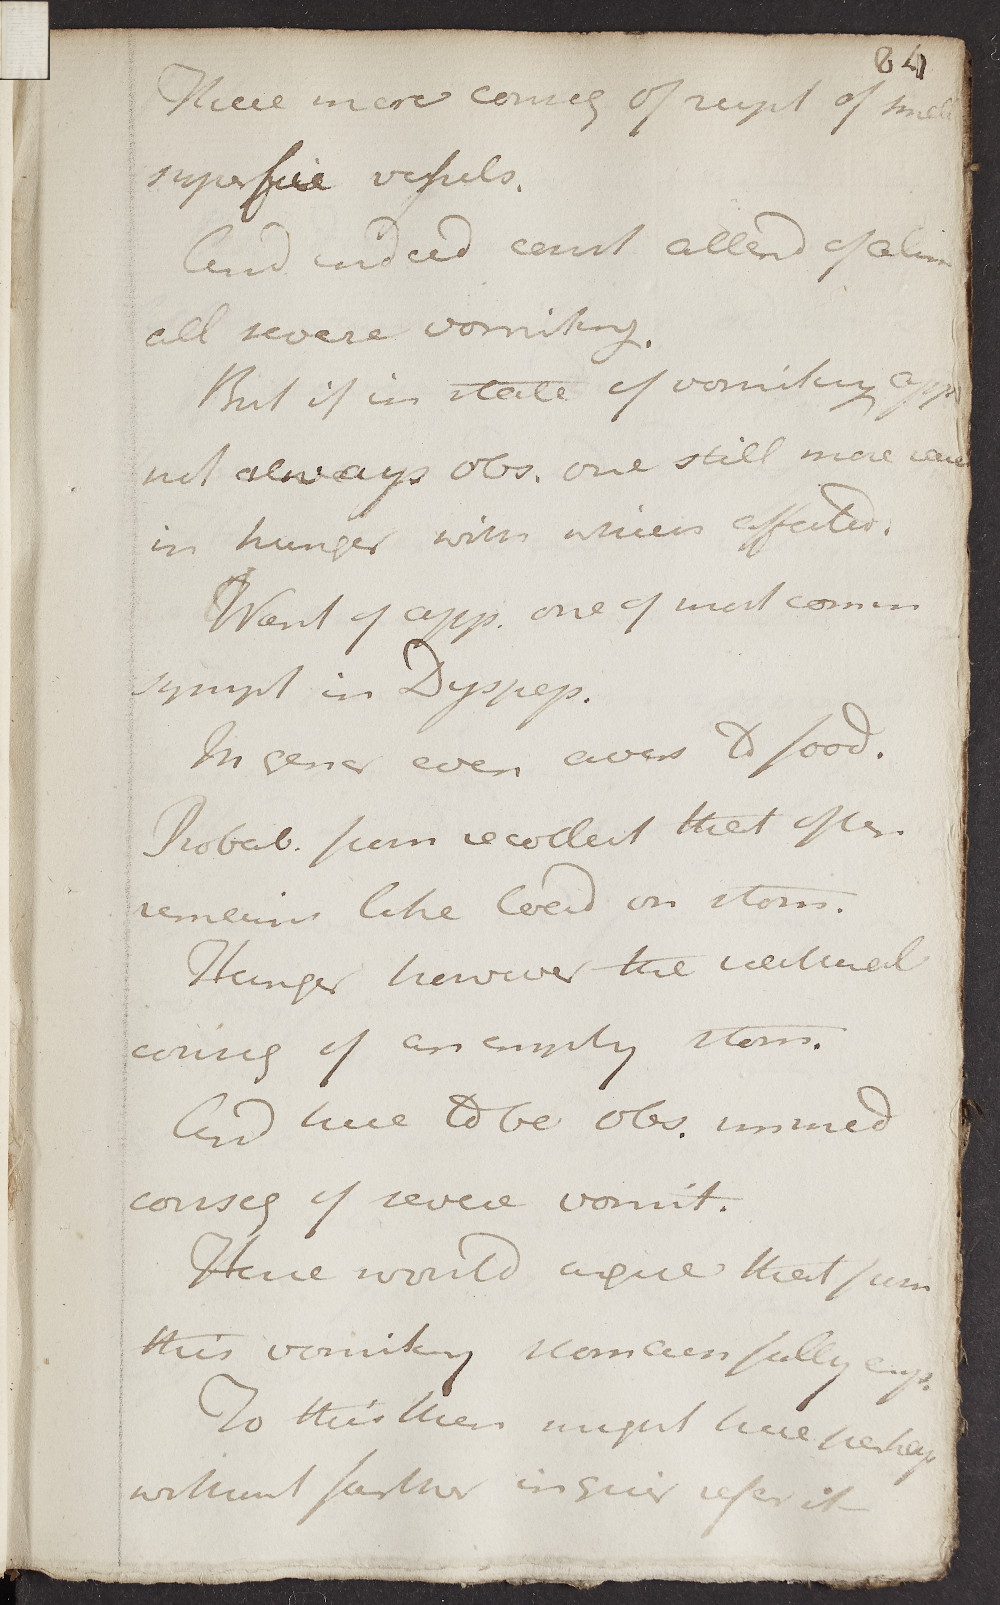 84
Here mere conseq of rupt of small
superficie vessels.
And indeed const attend of alim
all severe vomiting.
But if in state of vomiting app
not always obs. one still more rare
in hunger with which affected.
Want of app. one of most comm
sympt in Dyspep.
In gener even avers to food.
Probab. from recollect that often
remains like load on stom.
Hunger however the natural
conseq of an empty stom.
And here to be obs. immed
conseq of severe vomit.
Here would argue that from
this vomiting stomach fully emp.
To this then might here perhap
without farther inquir refer it